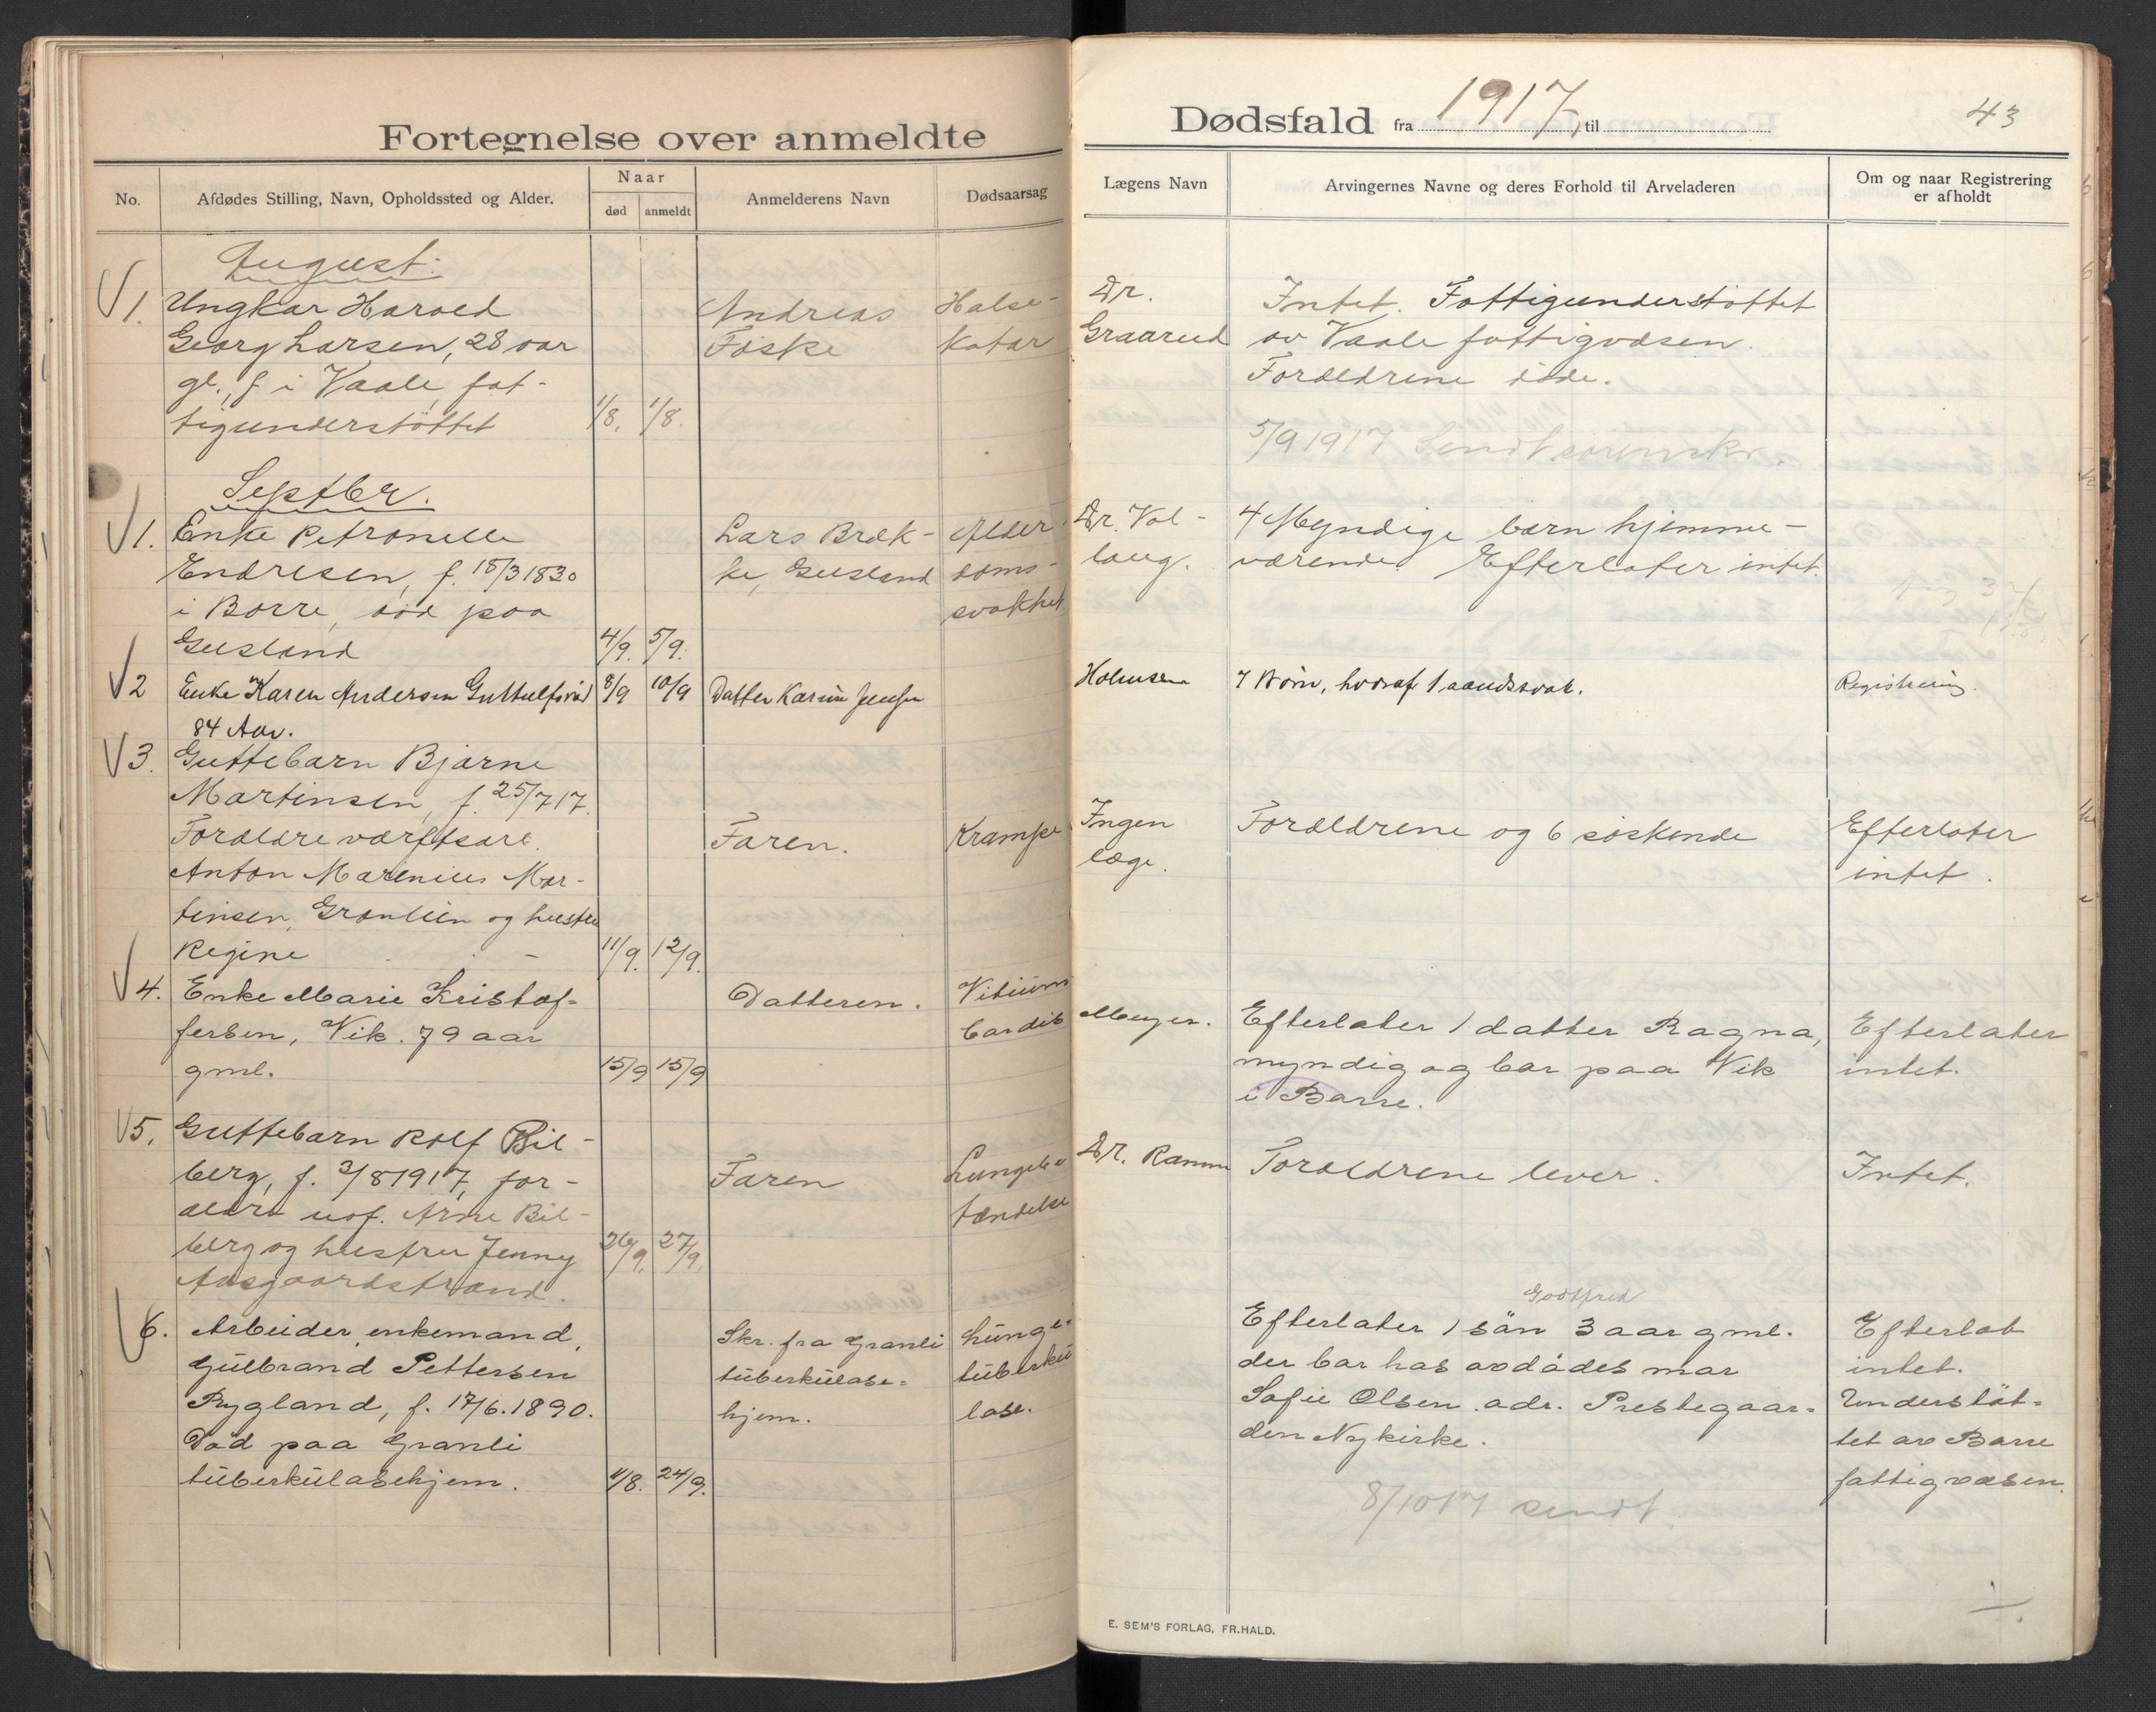 Fortegnelse over anmeldte
No.
Afdødes Stilling, Navn, Opholdssted og Alder.
Naar
død
anmeldt
Anmelderens Navn
Dødsaarsag
August:
1. Ungkar Harald
Georg Larsen, 28 aar
gl., f. i Vaale, fat-
tigunderstöttet
1/8. 1/8.
Andreas
Föske
Halse-
katar
Septbr.
1. Enke Petronelle
Endresen, f. 18/3 1830
i Borre, död paa
Gusland
4/9. 5/9.
Lars Bræk-
ke, Gusland
Alder-
doms-
svakhet
2 Enke Karen Andersen
84 Aar.
8/9 10/9
Datter Karine Jensen
3. Guttebarn Bjarne
Martinsen, f. 25/7 17.
Forældre værftsarb.
Anton Marenius Mar-
tinsen, Grönlien og hustru
Regine
11/9. 12/9.
Faren.
Krampe
4. Enke Marie Kristof-
fersen, Vik. 79 aar
gml.
15/9 15/9
Datteren.
Vitium
Cordis
5. Guttebarn Rolf Bil-
berg, f. 3/8 1917, for-
ældre Arne Bil-
berg og hustru Jenny
Aasgaardstrand.
26/9. 27/9.
Faren
Lungebe
tændelse
6. Arbeider, enkemand,
Gulbrand Pettersen
Rygland, f. 17/6. 1890.
Död paa Granli
tuberkulosehjem.
1/8. 24/9.
Skr. fra Granli
tuberkulose=
hjem.
Lunge=
tuberku
lose.
Dødsfald fra 1917, til
43
Lægens Navn
Arvingernes Navne og deres Forhold til Arveladeren
Om og naar Registrering
er afholdt
Dr.
Graarud
Intet. Fattigunderstöttet
av Vaale fattigvæsen.
Forældrene döde.
5/9 1917 Sendt sorenskr.
Dr. Vol-
laug.
4 Myndige barn hjemme-
værende. Efterlater intet.
Holmsen
7 Börn, hvoraf 1 aandssvak.
Registrering.
Ingen
læge.
Forældrene og 6 söskende
Efterlater
intet.
Meyer.
Efterlater 1 datter Ragna,
myndig og bor paa Vik
i Borre.
Efterlater
intet.
Dr. Ramm
Forældrene lever.
Intet.
Godtfred
Efterlater 1 sön 3 aar gml.
der bor hos avdödes mor
Sofie Olsen. adr. Prestegaar=
den Nykirke.
8/10 17 sendt.
Efterlot
intet.
Understöt=
tet av Borre
fattigvæsen.
E. SEM'S FORLAG, FR.HALD.